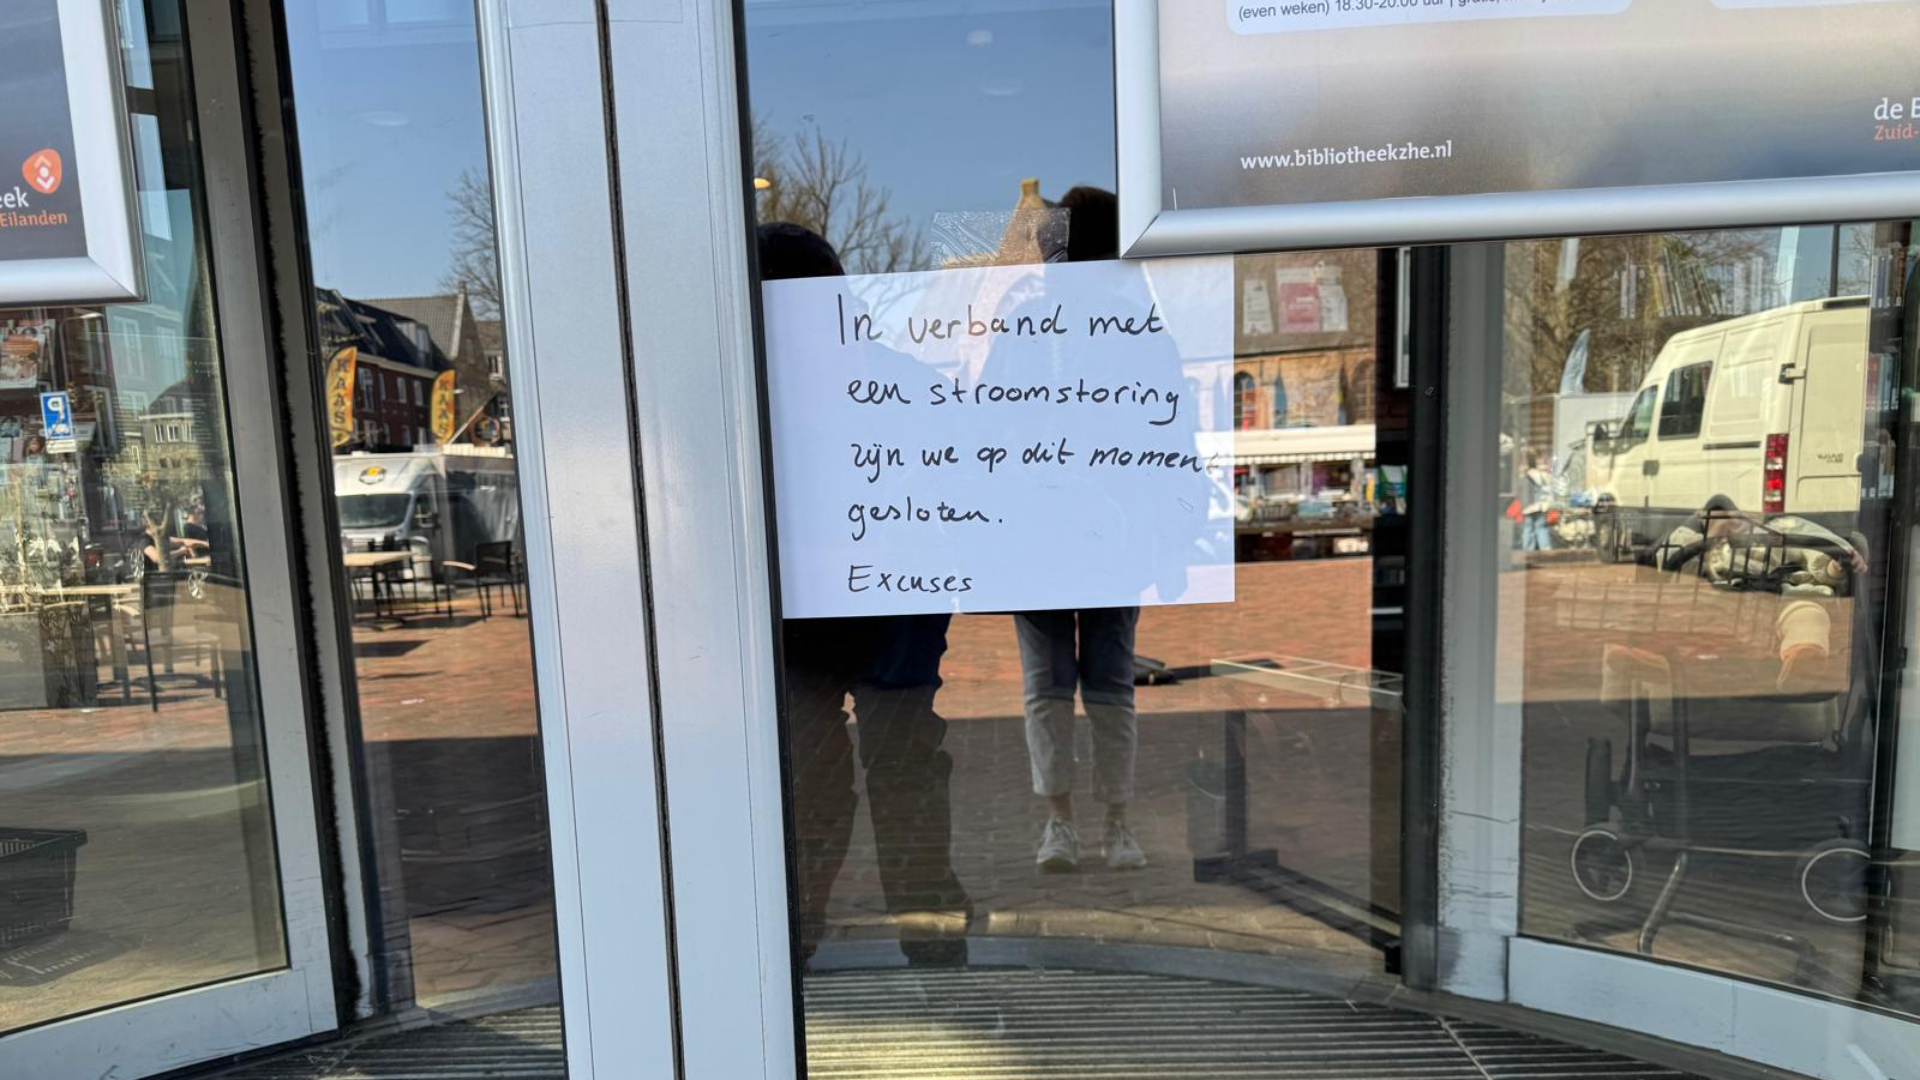 (even weken) 18.30-20.00 uur
www.bibliotheekzhe.nl
de E
Zuid-
eek
Eilanden
KAAS
KAAS
In verband met
een stroomstoring
zijn we op dit moment
gesloten.
Excuses